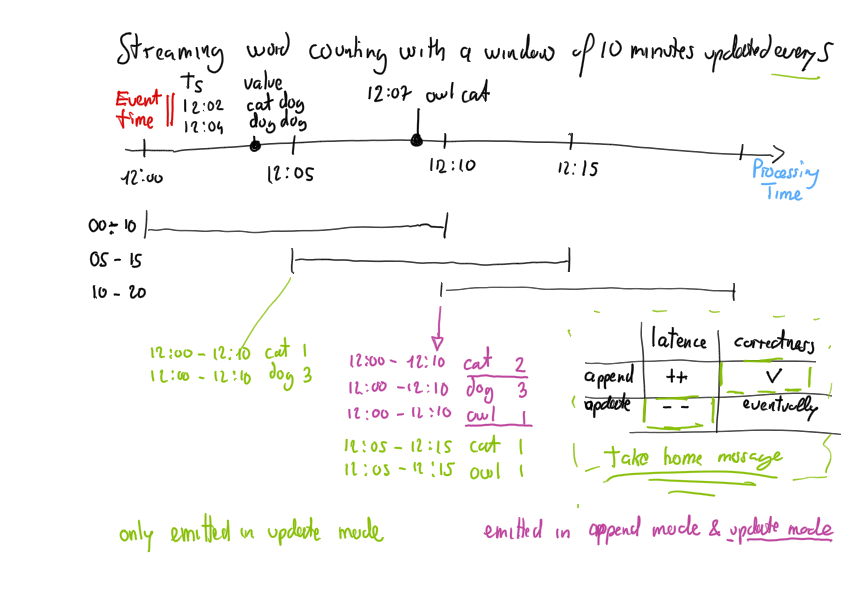 Streaming word counting with a window of 10 minutes updated every 5
TS value
Event Time
12:02 cat dog
12:04 dog dog
12:07 owl cat
12:00 12:05 12:10 12:15
Processing Time
00 ÷ 10
05 - 15
10 - 20
12:00 - 12:10 cat 1
12:00 - 12:10 dog 3
12:00 - 12:10 cat 2
12:00 - 12:10 dog 3
12:00 - 12:10 owl 1
12:05 - 12:15 cat 1
12:05 - 12:15 owl 1
latence correctness
append ++ ✓
update -- eventually
take home message
only emitted in update mode
emitted in append mode & update mode